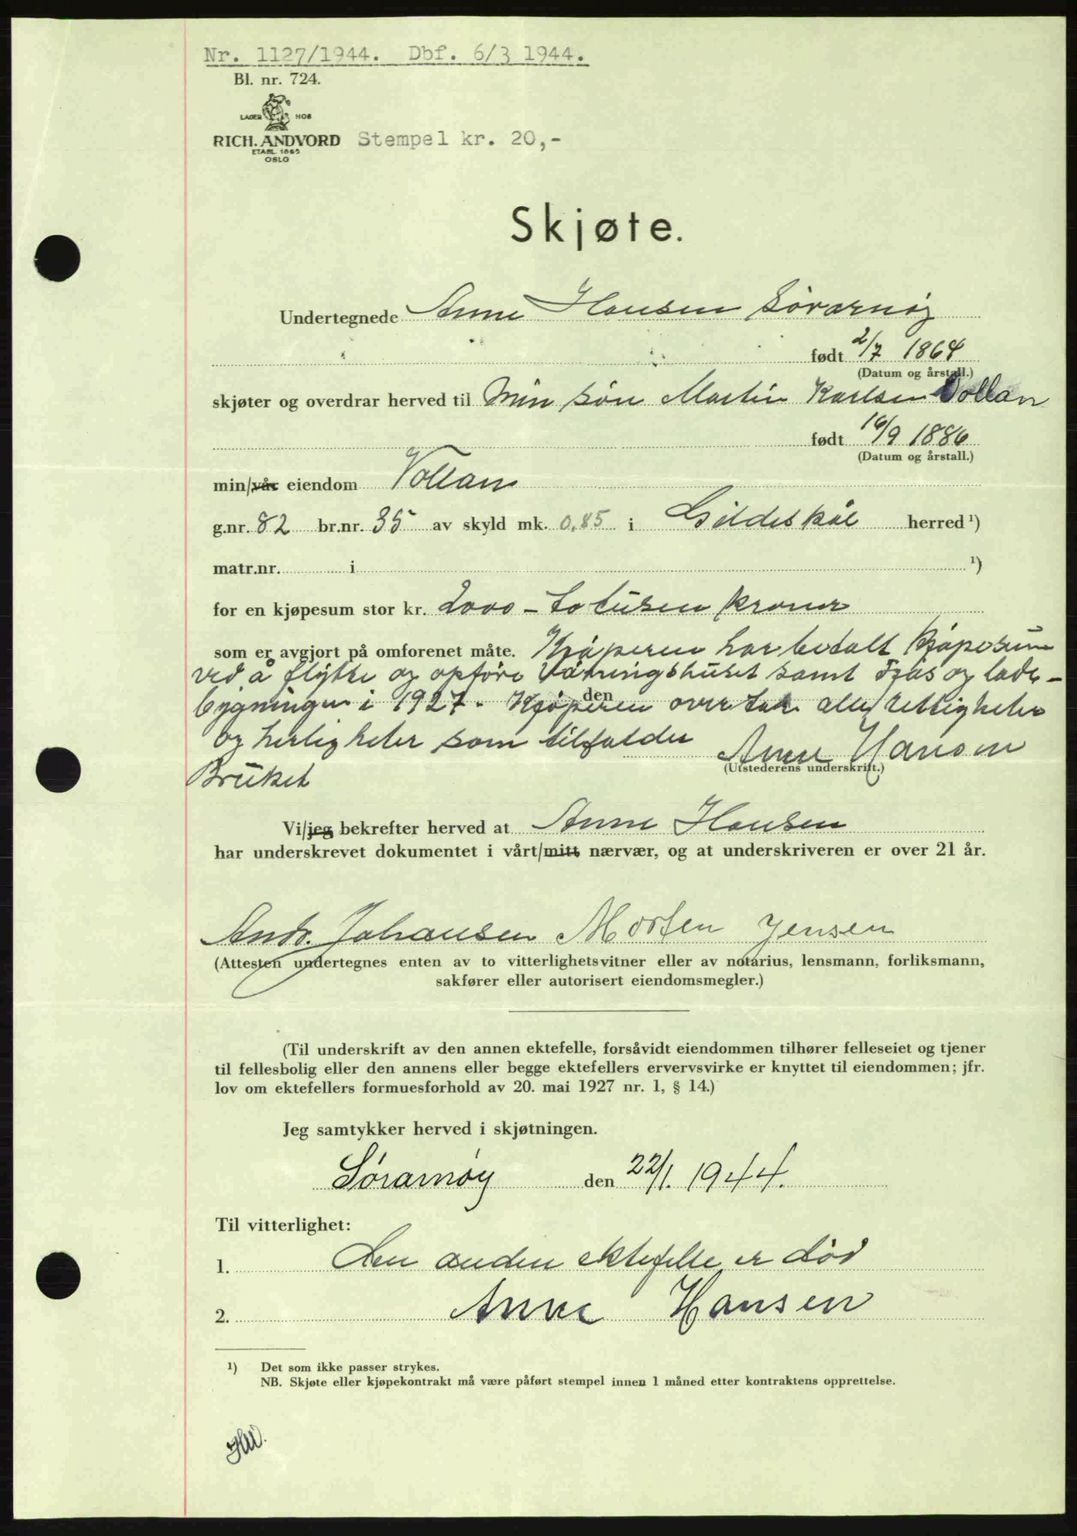 Nr. 1127/1944. Dbf. 6/3 1944.
Bl. nr. 724.
LAGER HOS
RICH. ANDVORD Stempel kr. 20,-
ETABL. 1865
OSLO
Skjøte.
Undertegnede Anne Hansen Sørarnøy
født 2/7 1864
(Datum og årstall.)
skjøter og overdrar herved til Min søn Martin Karlsen Vollan
født 16/9 1886
(Datum og årstall.)
min/vår eiendom Vollan
g.nr. 82 br.nr. 35 av skyld mk. 0.85 i Gildeskål herred ¹)
matr.nr. i ¹)
for en kjøpesum stor kr. 2000 - totusen kroner
som er avgjort på omforenet måte. Kjøperen har betalt Kjøpesum
ved å flytte og opføre Våningshuset samt fjøs og lade-
bygningen i 1927. Kjøperen overtar alle den rettigheter
og herligheter som tilfalder Anne Hansen
Bruket (Utstederens underskrift.)
Vi/jeg bekrefter herved at Anne Hansen
har underskrevet dokumentet i vårt/mitt nærvær, og at underskriveren er over 21 år.
Andr. Johansen Morten Jensen
(Attesten undertegnes enten av to vitterlighetsvitner eller av notarius, lensmann, forliksmann,
sakfører eller autorisert eiendomsmegler.)
(Til underskrift av den annen ektefelle, forsåvidt eiendommen tilhører felleseiet og tjener
til fellesbolig eller den annens eller begge ektefellers ervervsvirke er knyttet til eiendommen; jfr.
lov om ektefellers formuesforhold av 20. mai 1927 nr. 1, § 14.)
Jeg samtykker herved i skjøtningen.
Sørarnøy den 22/1. 1944.
Til vitterlighet:
1. Den anden ektefelle er død
2. Anne Hansen
¹) Det som ikke passer strykes.
NB. Skjøte eller kjøpekontrakt må være påført stempel innen 1 måned etter kontraktens opprettelse.